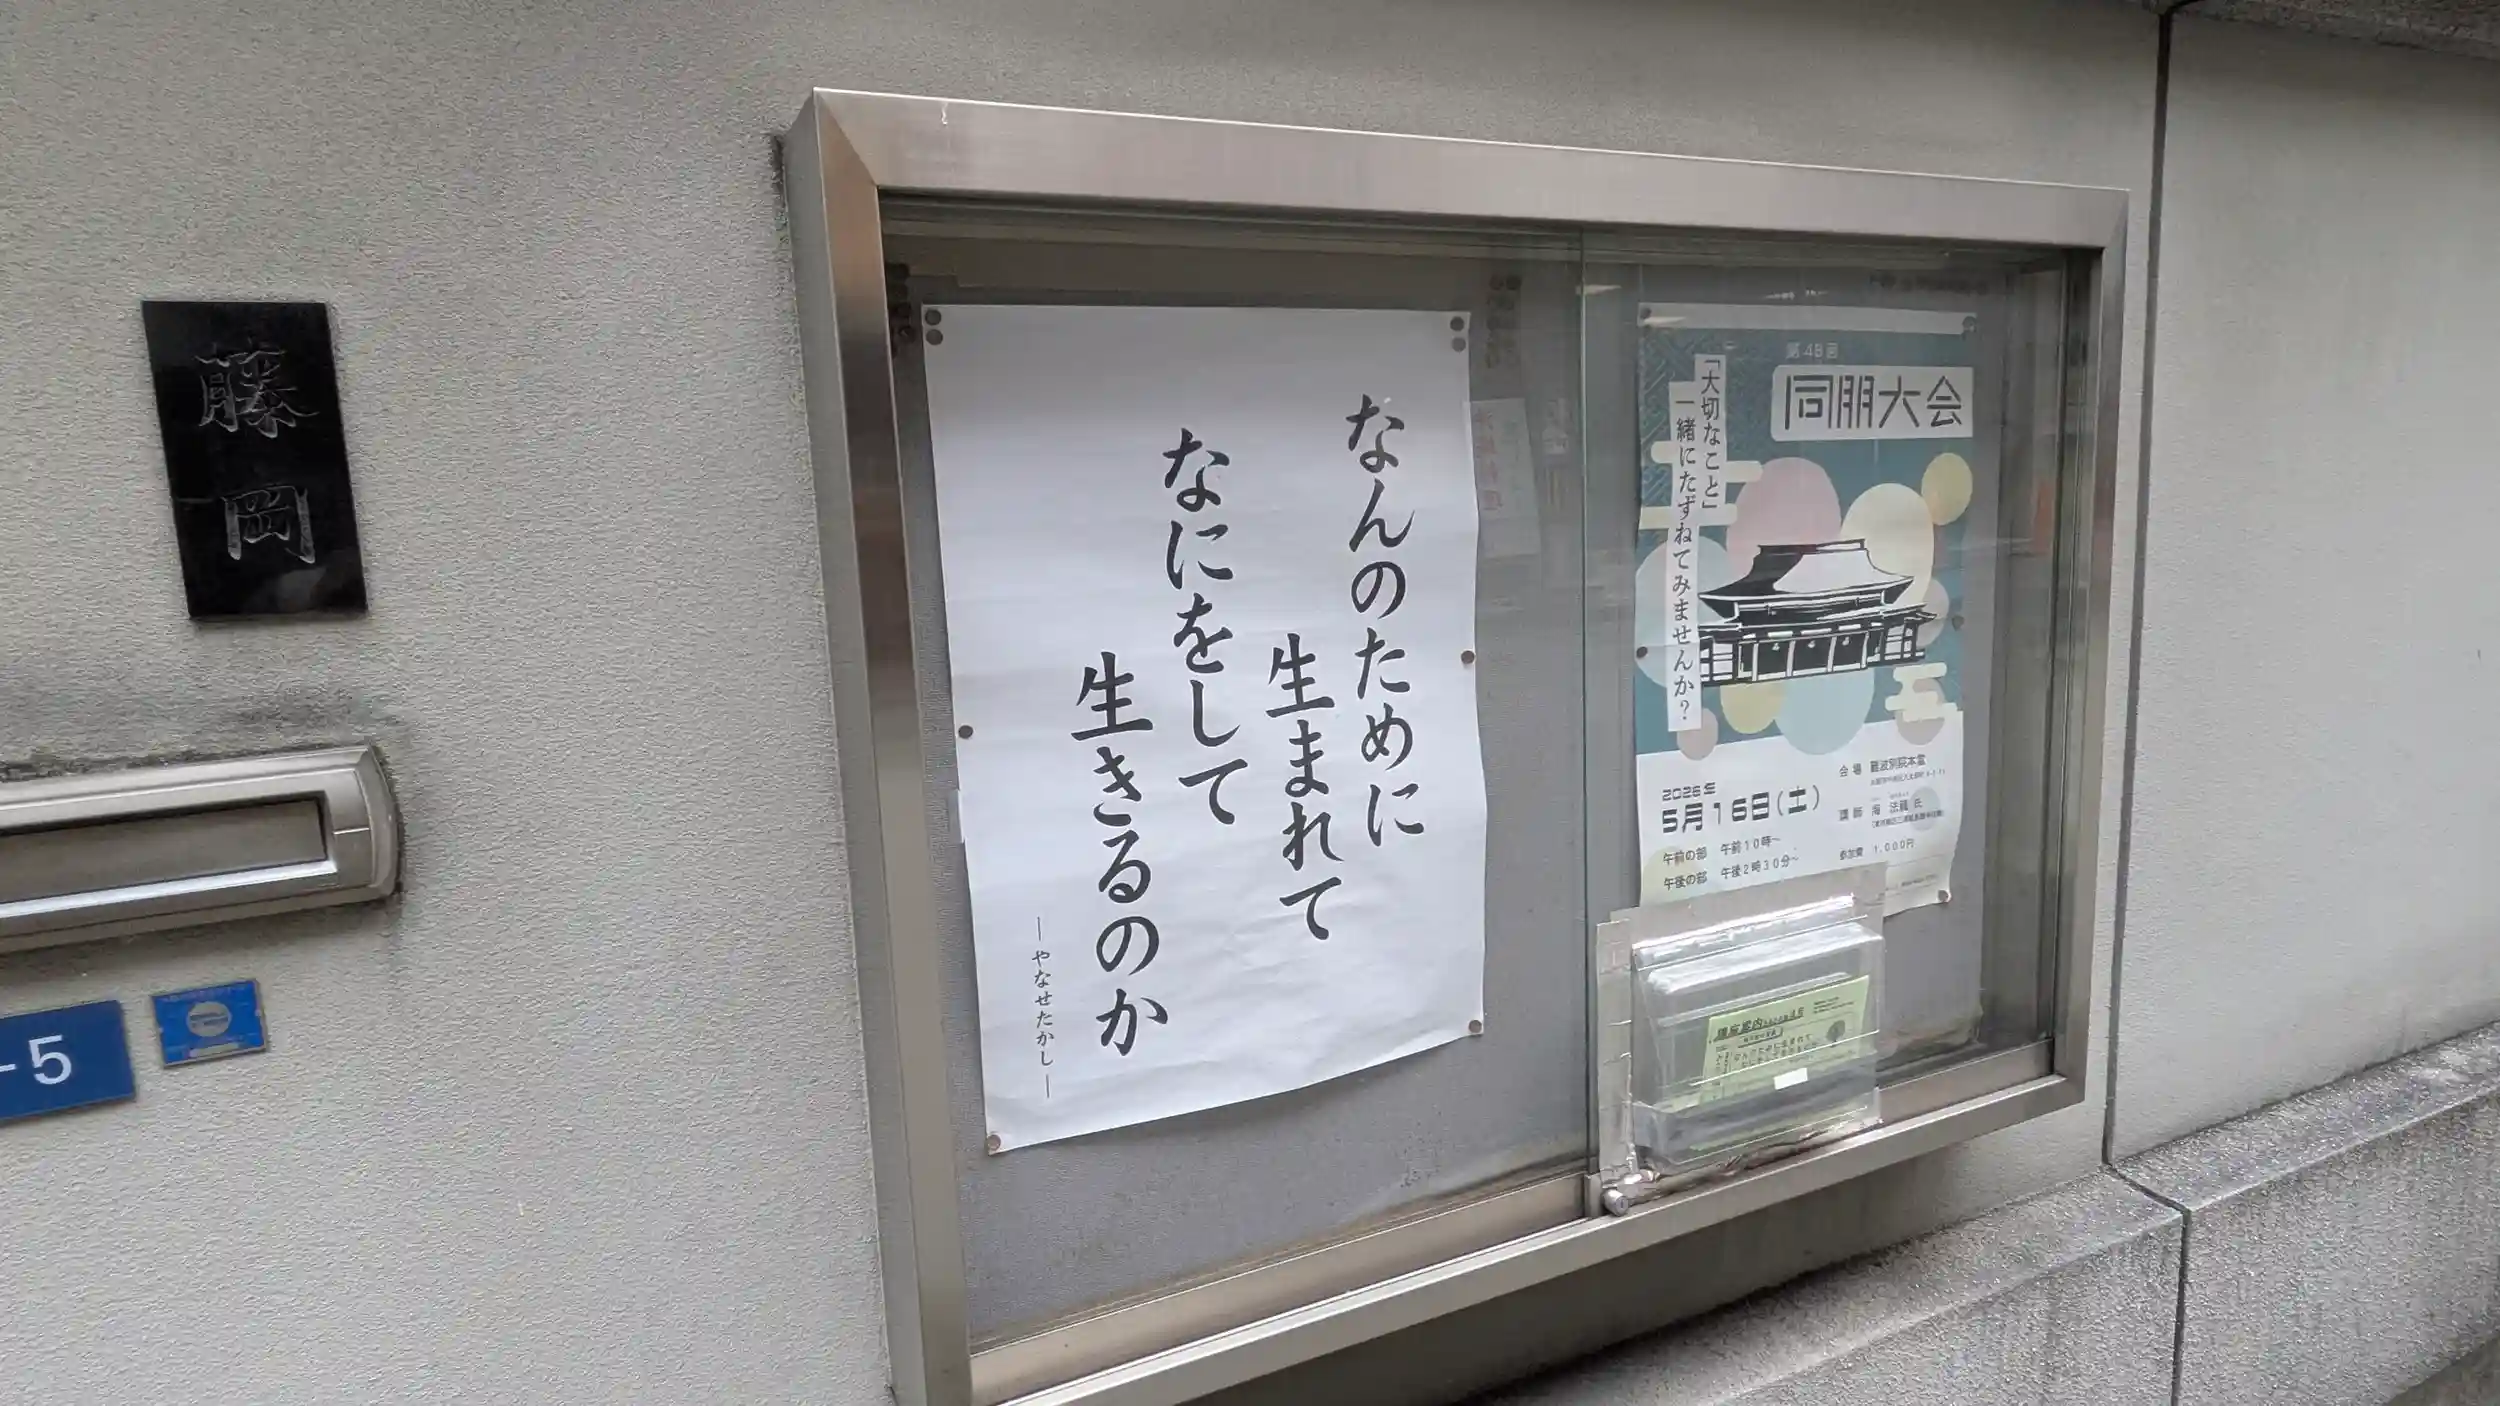 藤岡
-5
なんのために
生まれて
なにをして
生きるのか
―やなせたかし―
第48回
同朋大会
「大切なこと」
一緒にたずねてみませんか？
2026年
5月16日(土)
午前の部 午前10時～
午後の部 午後2時30分～
会場 難波別院本堂
参加費 1,000円